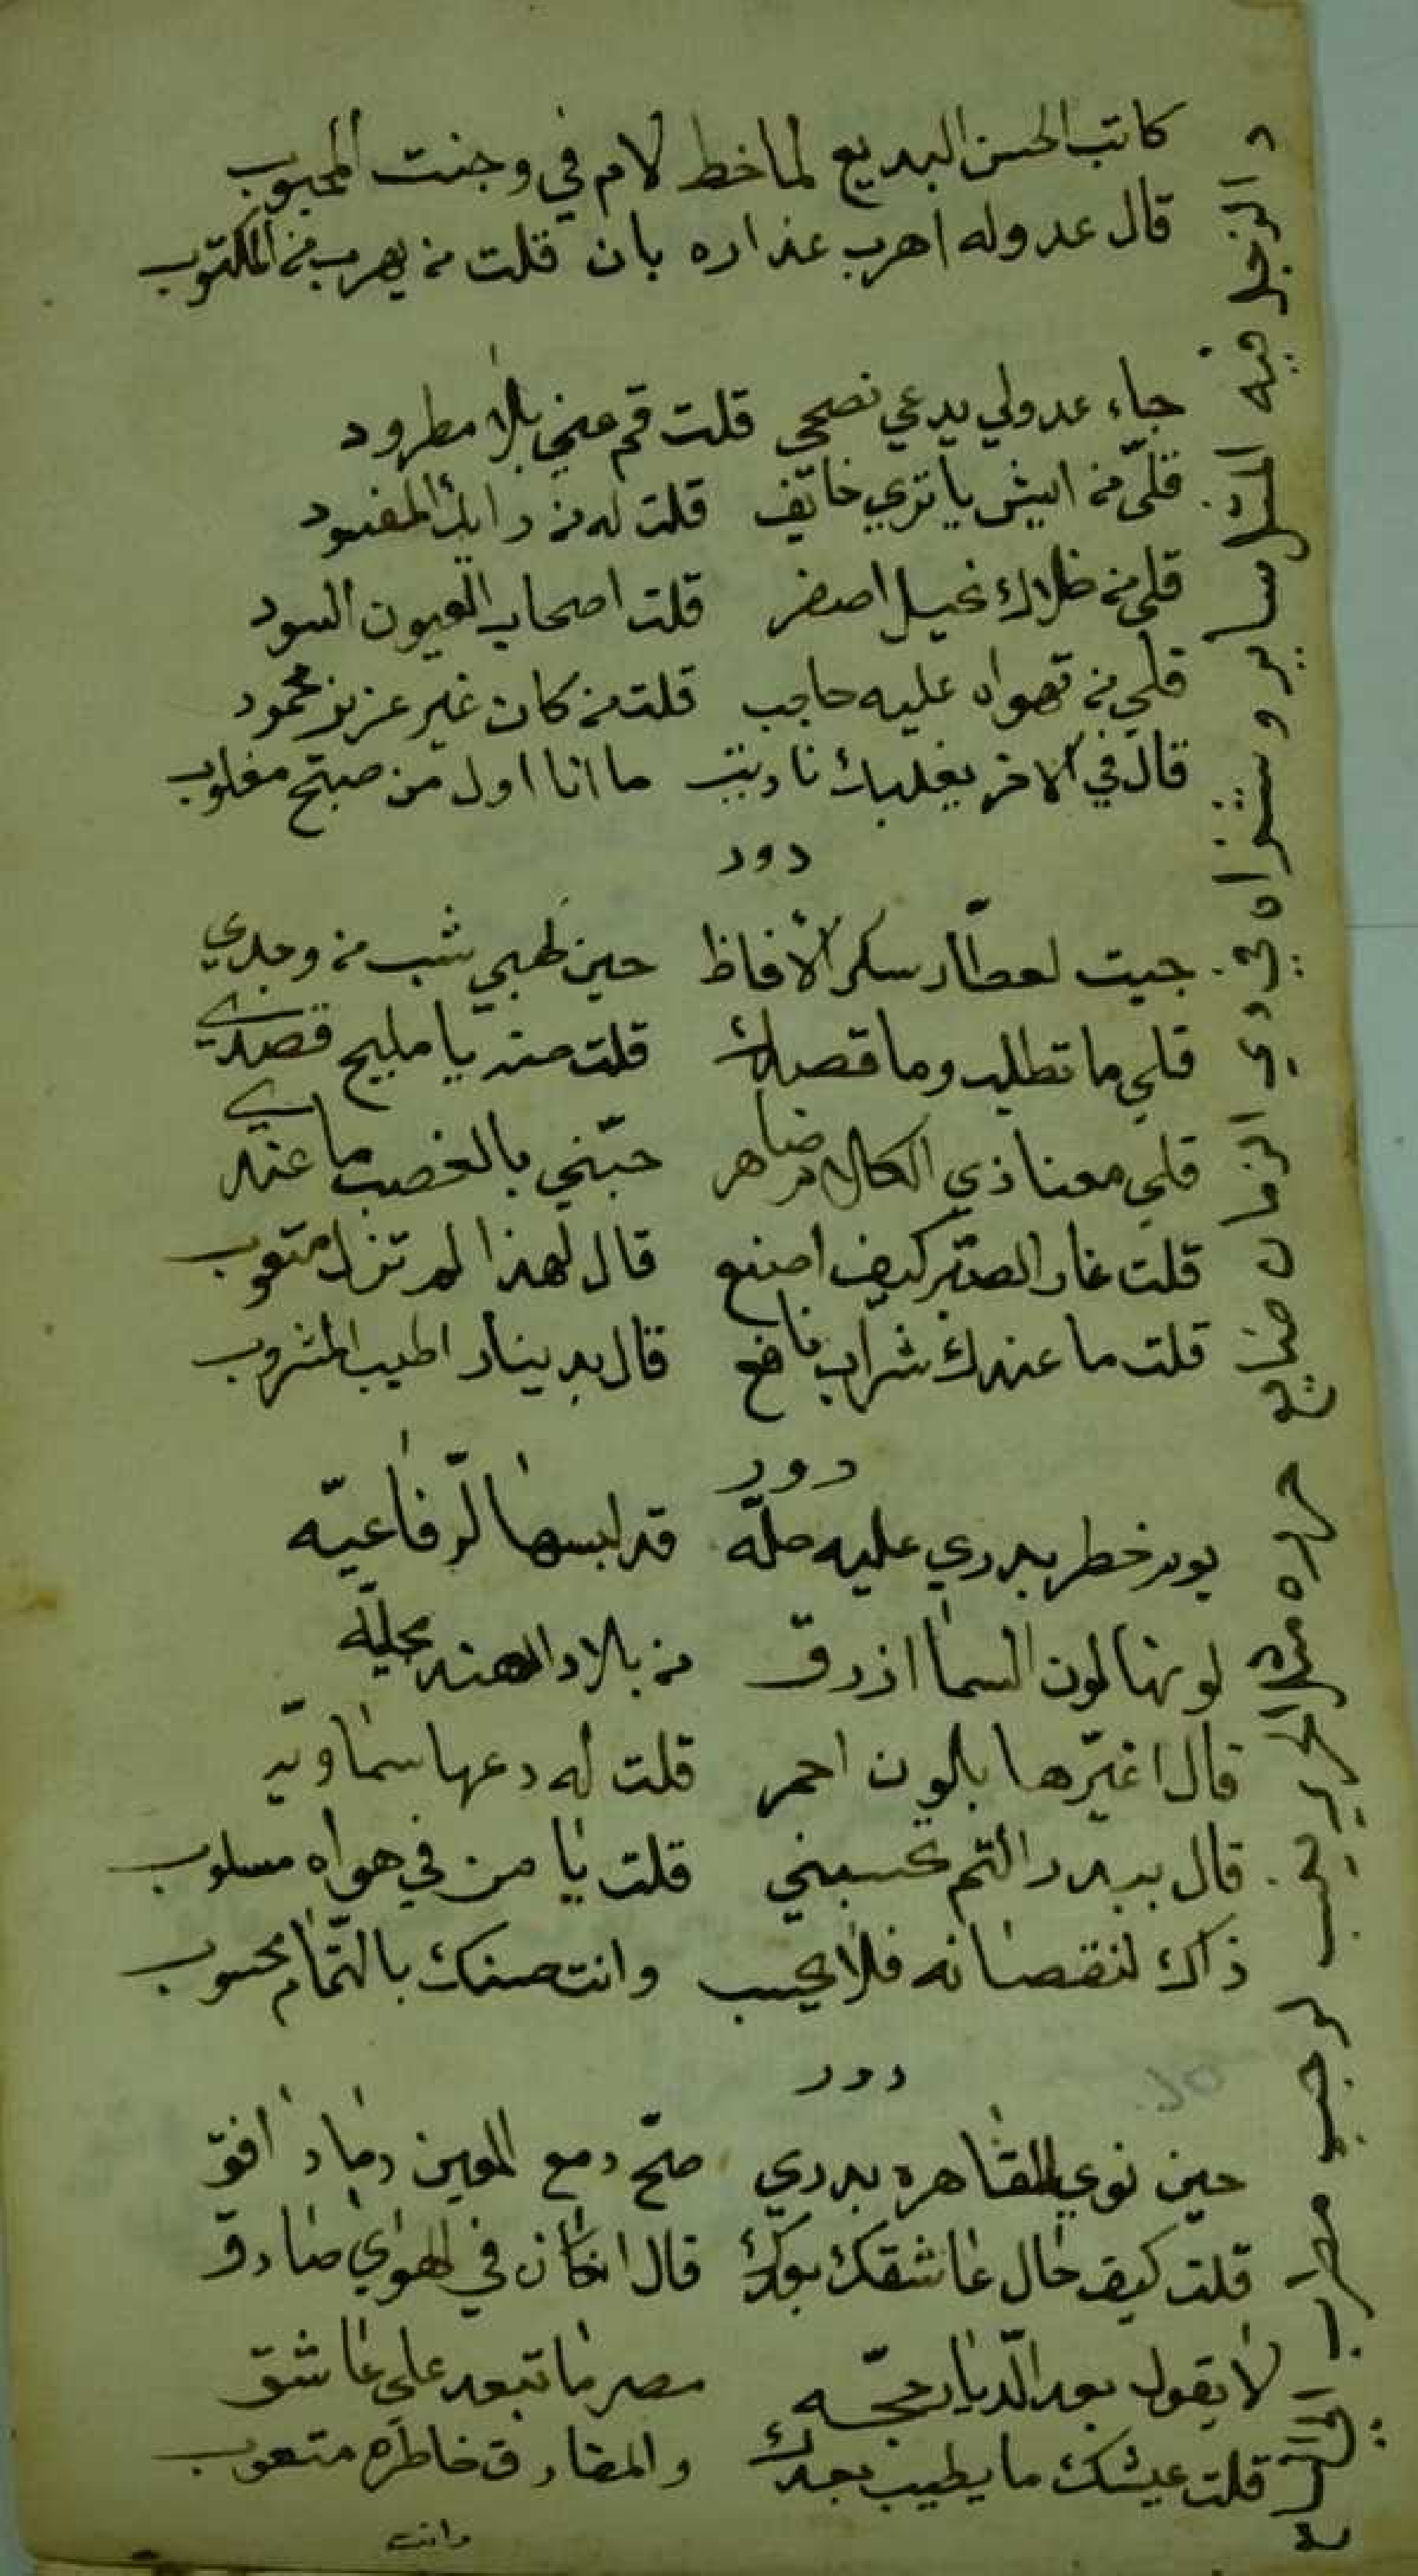 كاتب الحسن البديع لما خط لام في وجنت المحبوب
قال عدوله اهرب عذاره بان قلت من يهرب من المكتوب
جاء عدولي يدعي نصحي قلت قم عني بلا مطرود
قلي من ايش يا تري خايف قلت له من رايك المفسود
قلي من خلاك نحيل اصفر قلت اصحاب العيون السود
قلي من تهواه عليه حاجب قلت من كان غير عزيز محمود
قال في الاخر يغلبك ناديت ما انا اول من صبح مغلوب
دور
جيت لعطار سكر الالفاظ حين لهبي شب من وجدي
قلي ما تطلب وما قصدك قلت صبر يا مليح قصدي
قلي معنا ذي الكلام ضاهر حبني بالغصب ما عندي
قلت غار الصبر كيف اصنع قال لهذا لم تزل متعوب
قلت ما عندك شراب نافع قال بدينار اطيب المشروب
دور
يوم خطر بدري عليه حله قد لبسها الرفاعيه
لونها لون السما ازرق من بلاد الهند محليه
قال اغيرها بلون احمر قلت له دعها سماويه
قال ببدر التم تحسبني قلت يا من في هواه مسلوب
ذاك لنقصانه فلا يحسب وانت حسنك بالتمام محسوب
دور
حين نوي للقاهره بدري صح دمع العين دما دافق
قلت كيف حال عاشقك بعدك قال انكان في الهوي صادق
لا يقول بعد الديار حجه مصر ما تبعد على عاشق
قلت عيشك ما يطيب بعدك والمفارق خاطره متعوب
وانت
الزجل فيه المثل ساير